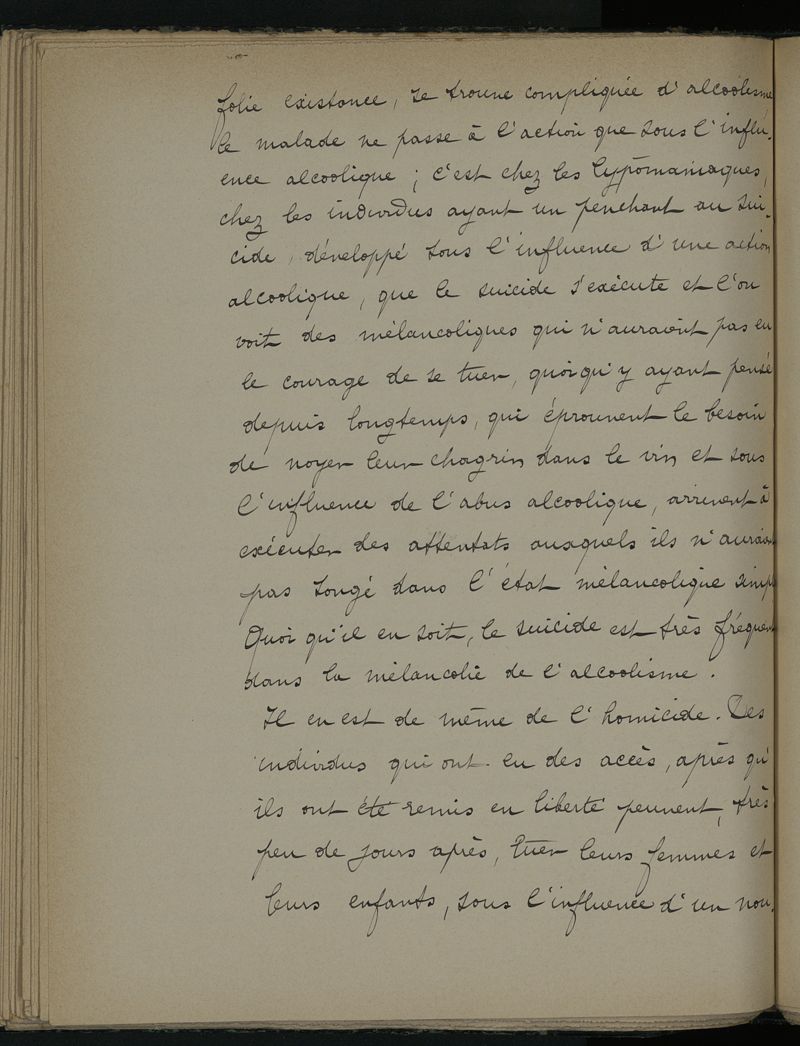 folie existance, se trouve compliquée d'alcoolisme
le malade ne passe à l'action que sous l'influ-
ence alcoolique ; c'est chez les lypémaniaques,
chez les individus ayant un penchant au sui-
cide, développé sous l'influence d'une action
alcoolique, que le suicide s'exécute et l'on
voit des mélancoliques qui n'auraient pas eu
le courage de se tuer, quoiqu'y ayant pensé
depuis longtemps, qui éprouvent le besoin
de noyer leur chagrin dans le vin et sous
l'influence de l'abus alcoolique, arrivent à
exécuter des attentats auxquels ils n'auraient
pas songé dans l'état mélancolique simp
Quoi qu'il en soit, le suicide est très fréquent
dans la mélancolie de l'alcoolisme.
Il en est de même de l'homicide. Des
individus qui ont eu des accès, après qu'
ils ont été remis en liberté peuvent, très
peu de jours après, tuer leurs femmes et
leurs enfants, sous l'influence d'un nou-